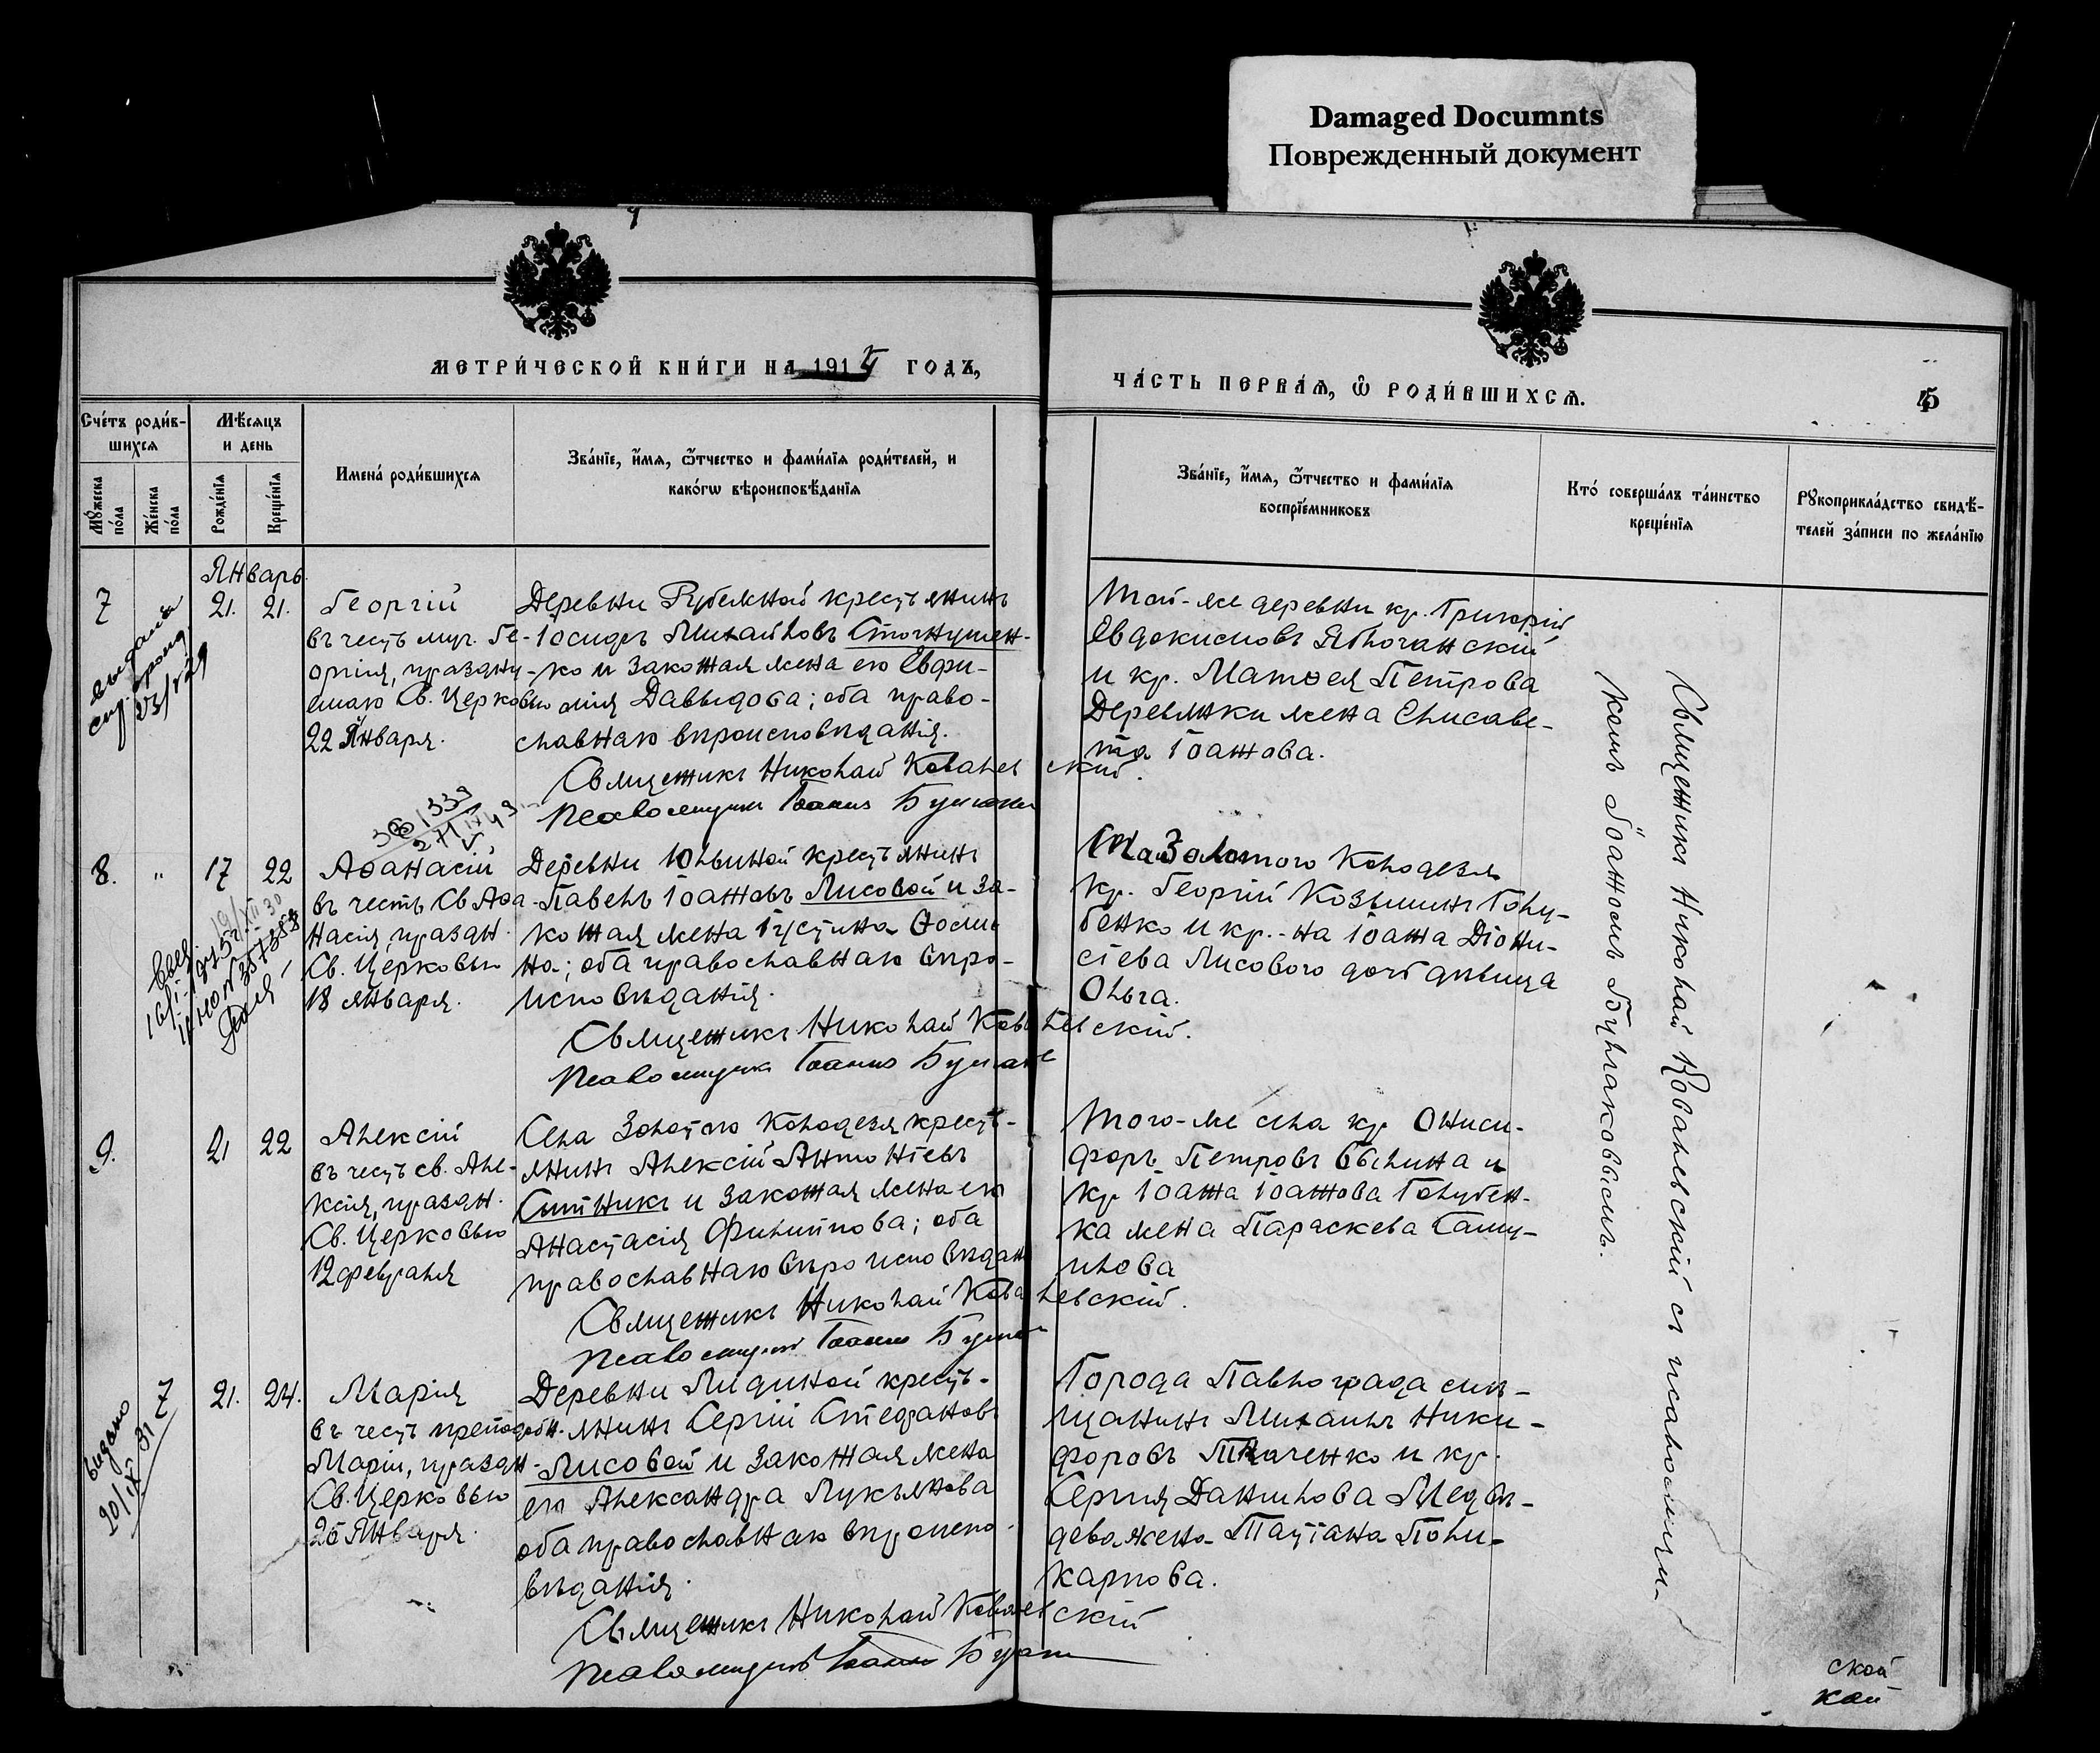 Damaged Documnts
Поврежденный документ
МЕТРИ́ЧЕСКОЙ КНИ́ГИ НА 191 ГОДЪ,
ЧА́СТЬ ПЕРВА́Я, Ѡ РОДИ́ВШИХСЯ.
5
Сче́тъ роди́в-
шихся
Мѣ́сяцъ
и день
Му́жеска
по́ла
Же́нска
по́ла
Рожде́нїя
Креще́нїя
Имена́ роди́вшихся
Зва́нїе, и́мя, ѻ́тчество и фами́лїя роди́телей, и
како́гѡ вѣроисповѣ́данїя
Зва́нїе, и́мя, ѻ́тчество и фами́лїя
воспрїе́мниковъ
Кто́ соверша́лъ та́инство
креще́нїя
Рꙋкоприкла́дство свидѣ́-
телей за́писи по жела́нїю
Январь.
7
21. 21.
Георгій
въ честь муч. Ге-
оргія, праздну-
емаго Св. Церковью
22 Января.
Деревни Рубежной крестьянинъ
Іосифъ Михайловъ
ко и законная жена его Евфи-
мія Давыдова; оба право-
славнаго вѣроисповѣданія.
Священникъ Николай Ковалевскій.
Псаломщикъ Іоаннъ
Той-же деревни кр. Григорій
Евдокимовъ
и кр. Матѳея Петрова
Деревянки жена Елисаве-
та Іоаннова.
8. " 17 22
Аѳанасій
въ честь Св. Аѳа-
насія, праздн.
Св. Церковью
18 января.
Деревни крестьянинъ
Павелъ Іоанновъ Лисовой и за-
конная жена Іустина
на; оба православнаго вѣро-
исповѣданія.
Священникъ Николай Ковалевскій.
Псаломщикъ Іоаннъ
Золотого Колодезя
кр. Георгій Козьминъ Голу-
бенко и кр.-на Іоанна Діони-
сіева Лисового дочь дѣвица
Ольга.
9. 21 22
Алексій
въ честь св. Але-
ксія, праздн.
Св. Церковью
12 февраля
Села Золотого Колодезя кресть-
янинъ Алексій Антоніевъ
Ситникъ и законная жена его
Анастасія Филиппова; оба
православнаго вѣроисповѣдан
Священникъ Николай Ковалевскій.
Псаломщикъ Іоаннъ
Того-же села кр. Ониси-
форъ Петровъ Былина и
кр. Іоанна Іоаннова Голубен-
ка жена Параскева Саму-
илова
7
21. 24.
Марія
въ честь преподобн.
Маріи, праздн.
Св. Церковью
26 Января.
Деревни крестъ-
янинъ Сергій Стефановъ
Лисовой и законная жена
его Александра Лукьянова
оба православнаго вѣроиспо-
вѣданія.
Священникъ Николай Ковалевскій
Псаломщикъ Іоаннъ
Города Павлограда мѣ-
щанинъ Михаилъ Ники-
форовъ Ткаченко и кр.
Сергія Данилова Медвѣ-
дева жена Татіана Поли-
карпова.
Священникъ Николай Ковалевскій съ псаломщи-
комъ Іоанномъ Булгаковымъ.
выдано
ской
кой